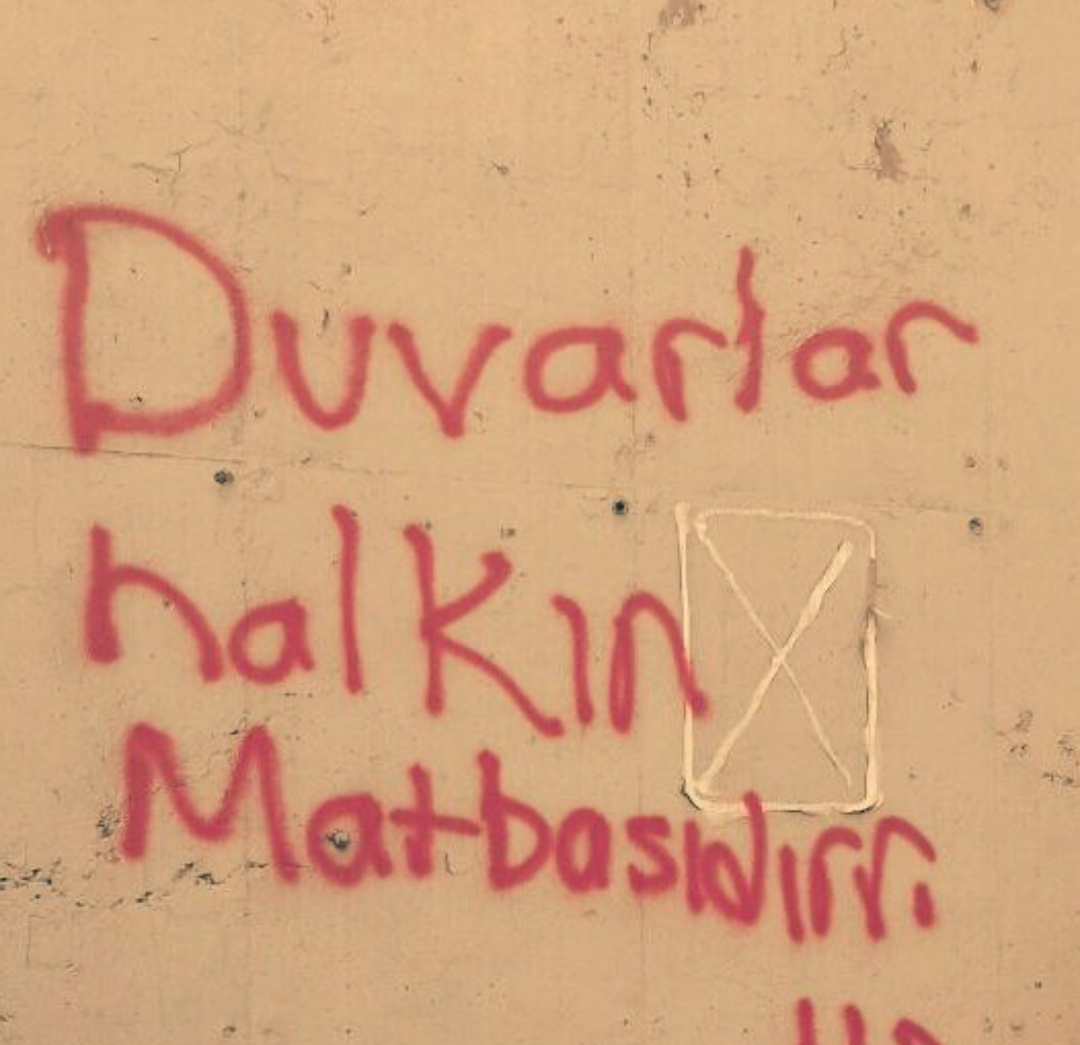 Duvarlar
halkın
Matbasıdırr